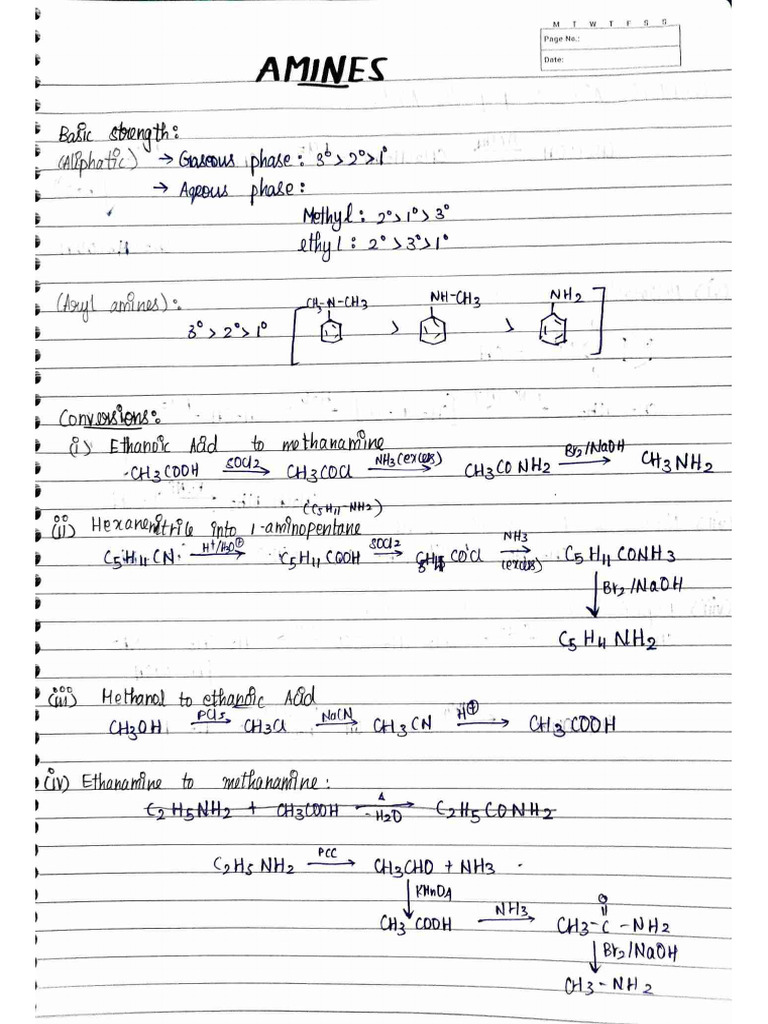 M T W T F S S
Page No.:
Date:
AMINES
Basic strength:
(Aliphatic) → Gaseous phase: 3° > 2° > 1°
→ Aqeous phase:
Methyl: 2° > 1° > 3°
ethyl: 2° > 3° > 1°
(Aryl amines):
3° > 2° > 1° [ CH3-N-CH3 > NH-CH3 > NH2 ]
Conversions:
(i) Ethanoic Acid to methanamine
CH3COOH SOCl2→ CH3COCl NH3(excess)→ CH3CONH2 Br2/NaOH→ CH3NH2
(C5H11-NH2)
(ii) Hexanenitrile into 1-aminopentane
C5H11CN H+/H3O⊕→ C5H11COOH SOCl2→ C5H11COCl NH3 (excess)→ C5H11CONH3
↓ Br2/NaOH
C5H11NH2
(iii) Methanol to ethanoic Acid
CH3OH PCl5→ CH3Cl NaCN→ CH3CN H⊕→ CH3COOH
(iv) Ethanamine to methanamine:
C2H5NH2 + CH3COOH Δ -H2O→ C2H5CONH2
C2H5NH2 PCC→ CH3CHO + NH3
↓ KMnO4
CH3COOH NH3→ CH3-C-NH2
O
↓ Br2/NaOH
CH3-NH2